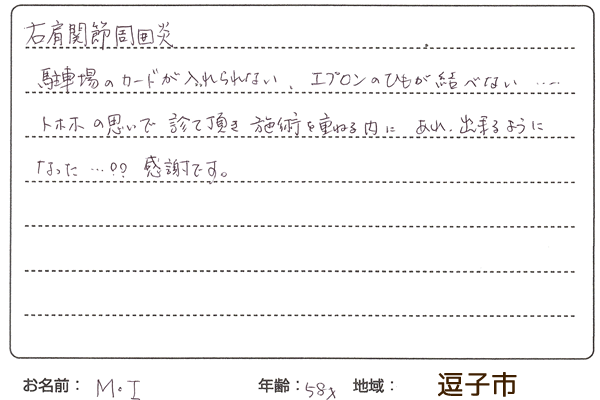 右肩関節周囲炎
駐車場のカードが入れられない、エプロンのひもが結べない……
トホホの思いで診て頂き施術を重ねる内に あれ、出来るように
なった…?? 感謝です。
お名前： M・I 年齢：58才 地域： 逗子市